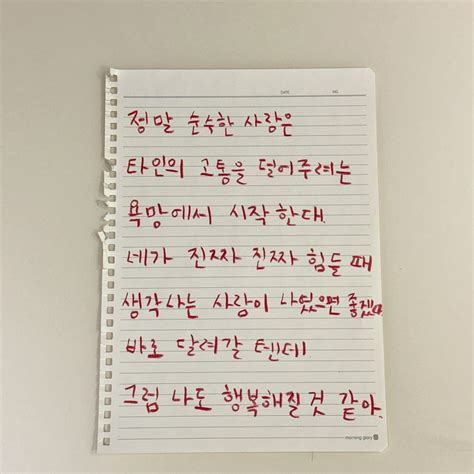 DATE NO.
정말 순수한 사랑은
타인의 고통을 덜어주려는
욕망에서 시작한대.
네가 진짜 진짜 힘들 때
생각나는 사람이 나였으면 좋겠다
바로 달려갈 텐데.
그럼 나도 행복해질 것 같아.
morning glory